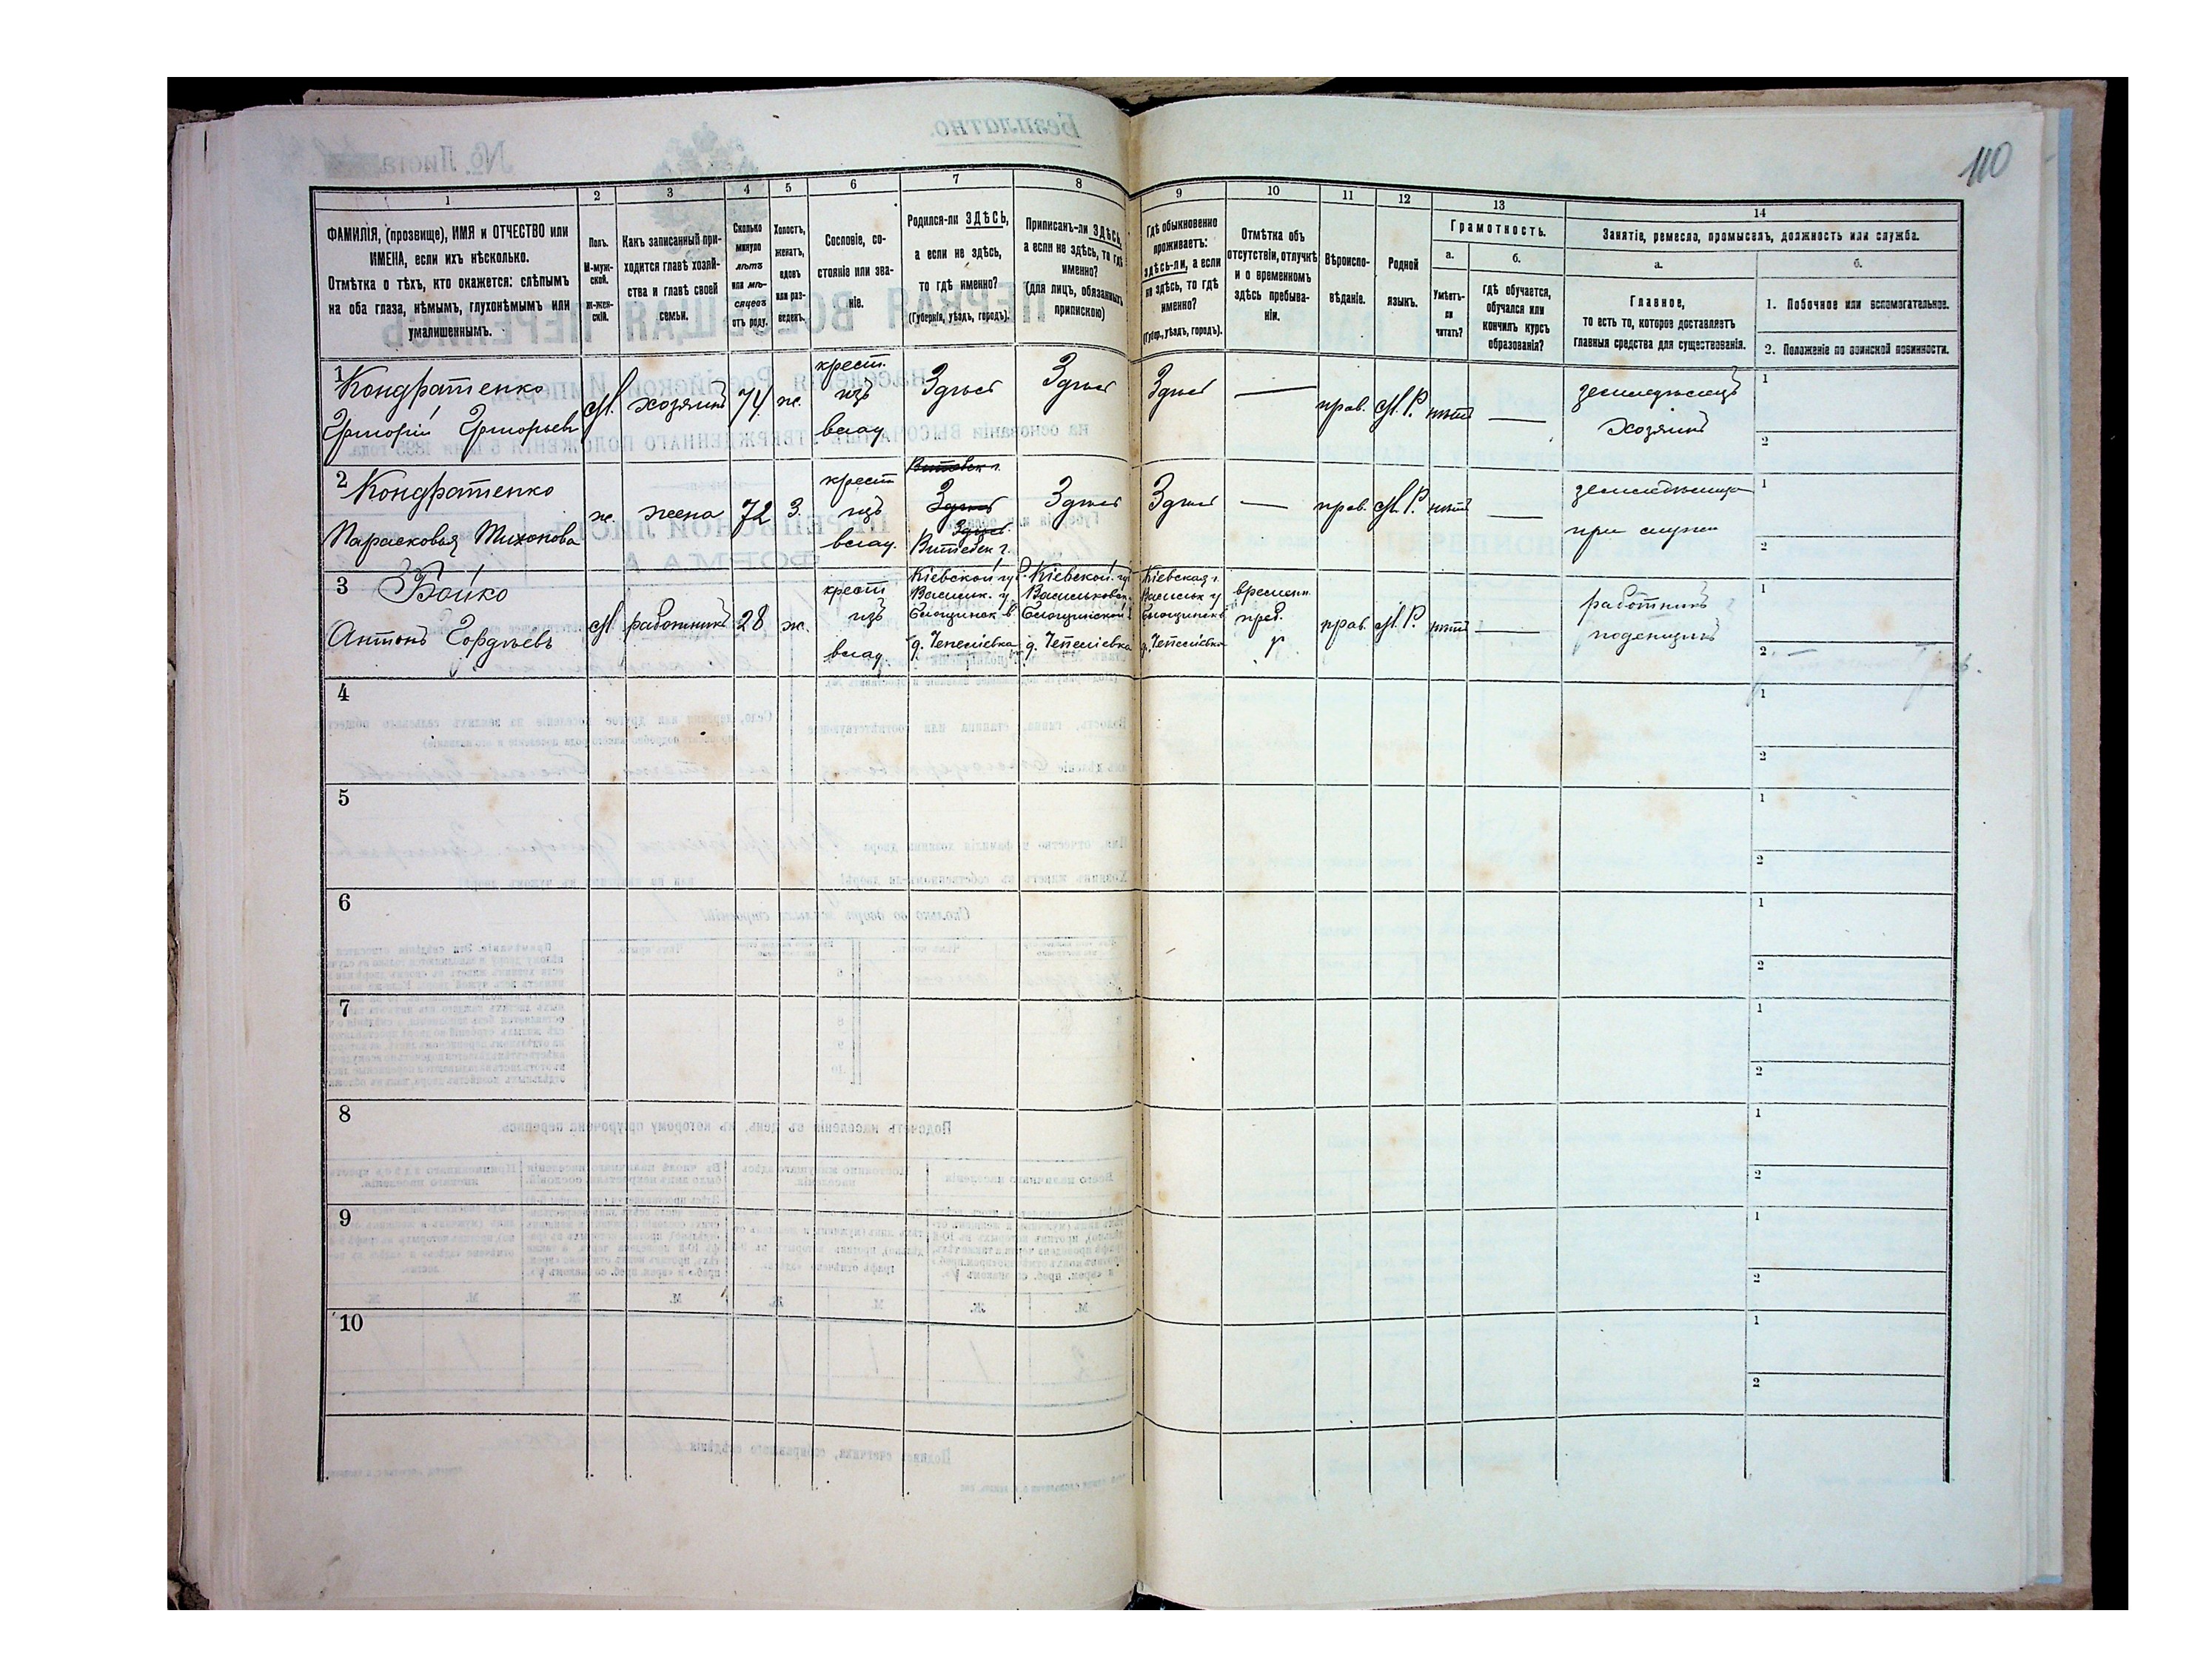 110
1
2
3
4
5
6
7
8
9
10
11
12
13
14
ФАМИЛІЯ, (прозвище), ИМЯ и ОТЧЕСТВО или
ИМЕНА, если ихъ нѣсколько.
Отмѣтка о тѣхъ, кто окажется: слѣпымъ
на оба глаза, нѣмымъ, глухонѣмымъ или
умалишеннымъ.
Полъ.
М-муж-
ской.
ж-жен-
скій.
Какъ записанный при-
ходится главѣ хозяй-
ства и главѣ своей
семьи.
Сколько
минуло
лѣтъ
или мѣ-
сяцевъ
отъ роду.
Холостъ,
женатъ,
вдовъ
или раз-
веденъ.
Сословіе, со-
стояніе или зва-
ніе.
Родился-ли ЗДѢСЬ,
а если не здѣсь,
то гдѣ именно?
(Губернія, уѣздъ, городъ).
Приписанъ-ли ЗДѢСЬ,
а если не здѣсь, то гдѣ
именно?
(для лицъ, обязанныхъ
припискою)
Гдѣ обыкновенно
проживаетъ:
здѣсь-ли, а если
не здѣсь, то гдѣ
именно?
(Губер., уѣздъ, городъ).
Отмѣтка объ
отсутствіи, отлучкѣ
и о временномъ
здѣсь пребыва-
ніи.
Вѣроиспо-
вѣданіе.
Родной
языкъ.
Грамотность.
а.
Умѣетъ-
ли
читать?
б.
Гдѣ обучается,
обучался или
кончилъ курсъ
образованія?
Занятіе, ремесло, промыселъ, должность или служба.
а.
Главное,
то есть то, которое доставляетъ
главныя средства для существованія.
б.
1. Побочное или вспомогательное.
2. Положеніе по воинской повинности.
1 Кондратенко
Григорій Григорьевъ
М. хозяинъ 74 ж.
крест.
изъ
влад.
Здѣсь Здѣсь Здѣсь — прав. М.Р. нѣтъ —
земледѣлецъ
хозяинъ
1
2
2 Кондратенко
Парасковья Тихонова
ж. жена 72 З.
крест
изъ
влад.
Здѣсь
Здѣсь
Витебск г.
Здѣсь Здѣсь — прав. М.Р. нѣтъ —
при мужѣ
1
2
3 Бойко
Антонъ Гордѣевъ
М. работникъ 28 ж.
крест
изъ
влад
Кіевской гу
Васильк. у
д. Чепелієвка
Кіевской гу
Васильковск.
д. Чепелієвка
Кіевская г.
Васильк у
д. Чепелієвка
временн.
преб.
прав. М.Р. нѣтъ —
работникъ
поденщикъ
1
2
4
1
2
5
1
2
6
1
2
7
1
2
8
1
2
9
1
2
10
1
2